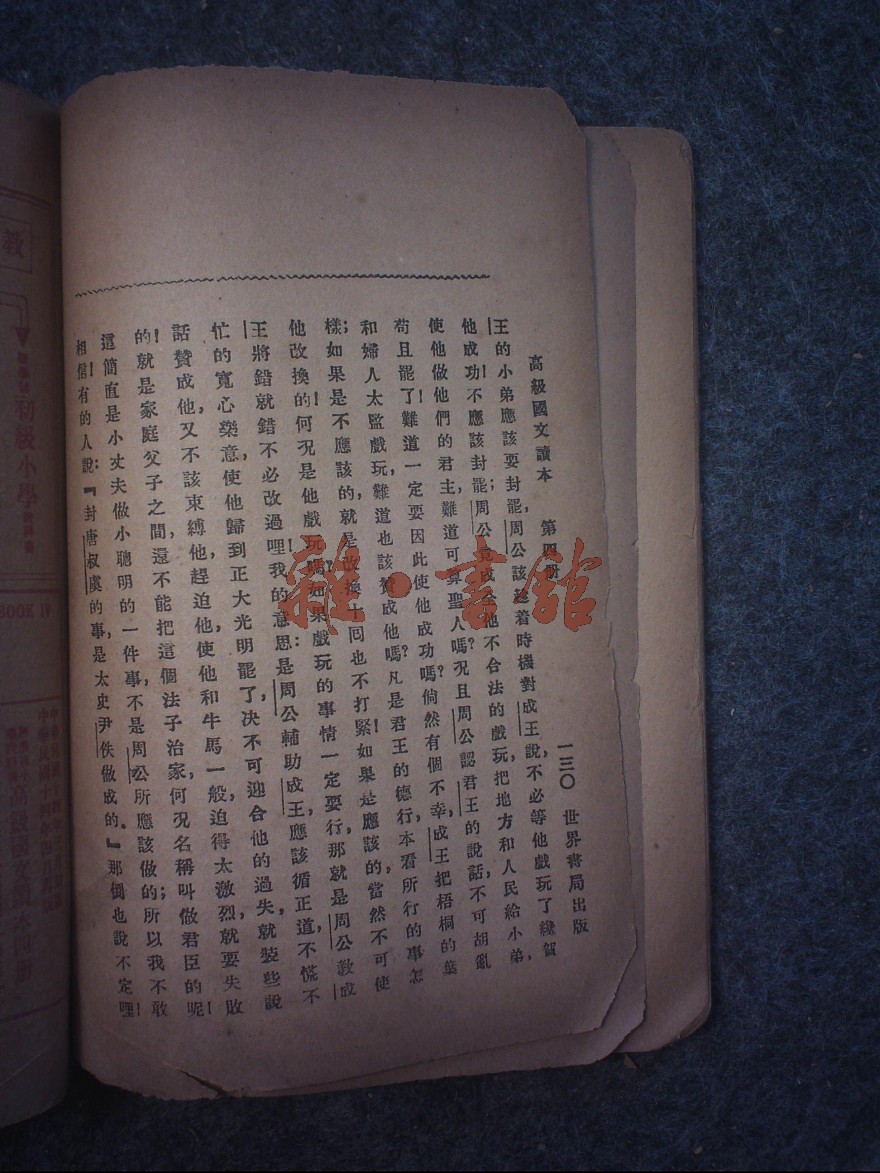 高級國文讀本 第四册 一三〇 世界書局出版
王的小弟應該要封罷，周公該趁着時機對成王說，不必等他戲玩了纔賀
他成功！不應該封罷；周公竟成合他不合法的戲玩，把地方和人民給小弟，
使他做他們的君主，難道可算聖人嗎？况且周公認君王的說話，不可胡亂
苟且罷了！難道一定要因此使他成功嗎？倘然有個不幸，成王把梧桐的葉
和婦人太監戲玩，難道也該贊成他嗎？凡是君王的德行，本看所行的事怎
樣；如果是不應該的，就是改換十回也不打緊！如果是應該的，當然不可使
他改換的！何況是他戲玩嗎？如果戲玩的事情一定要行，那就是周公敎成
王將錯就錯不必改過哩！我的意思：是周公輔助成王，應該循正道，不慌不
忙的寬心樂意，使他歸到正大光明罷了，決不可迎合他的過失，就裝些說
話贊成他，又不該束縛他，趕迫他，使他和牛馬一般，迫得太激烈，就要失敗
的！就是家庭父子之間，還不能把這個法子治家，何況名稱叫做君臣的呢！
這簡直是小丈夫做小聰明的一件事，不是周公所應該做的；所以我不敢
相信！有的人說：『封唐叔虞的事，是太史尹佚做成的。』那倒也說不定哩！
雜·書館
教
初級小學